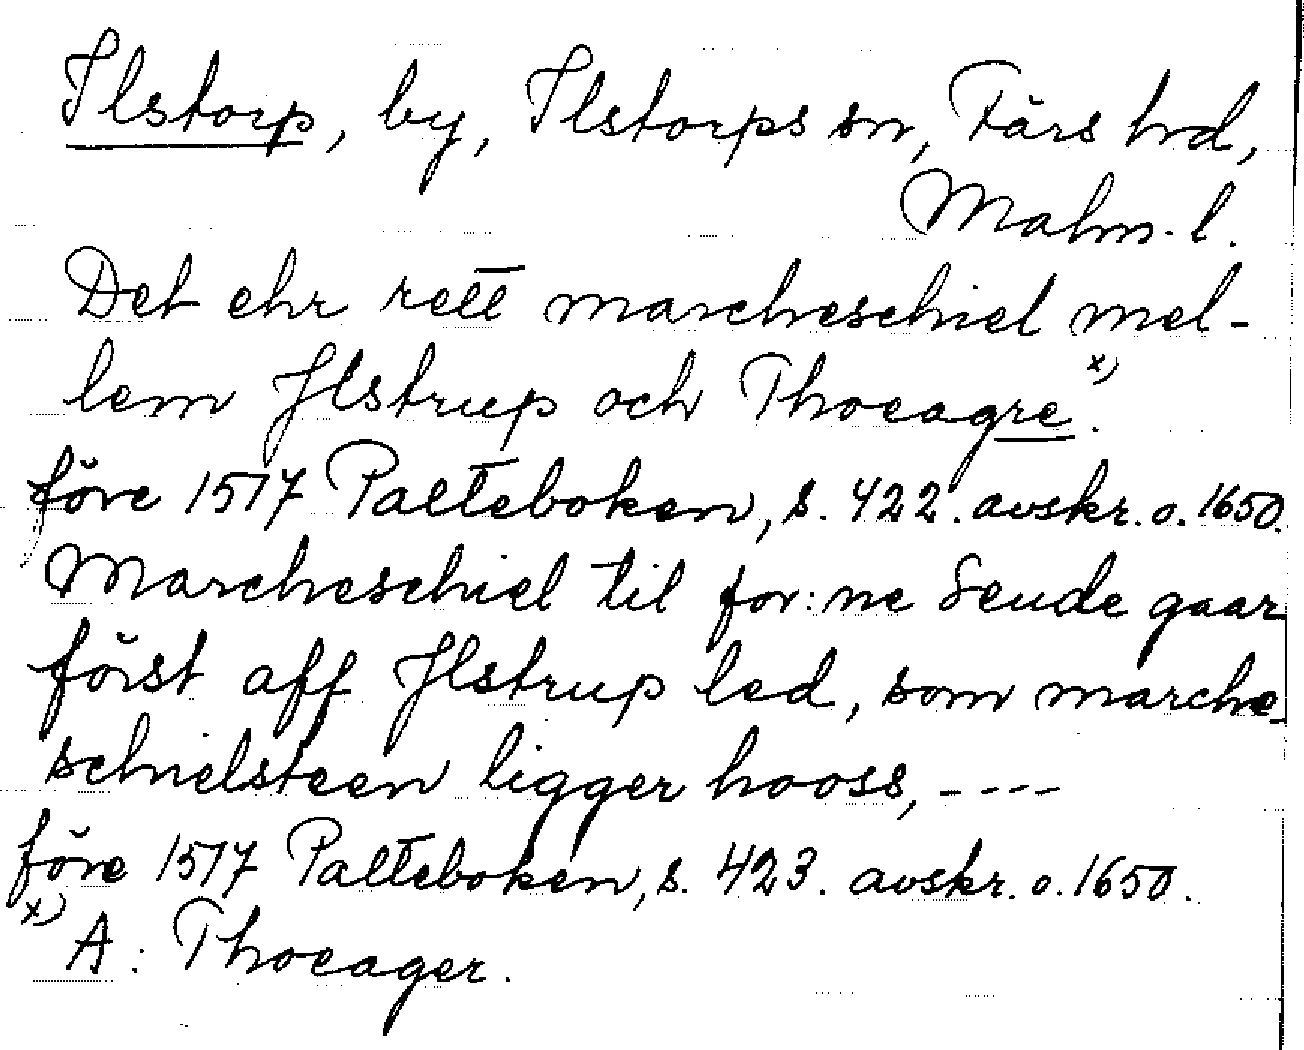 Ilstorp, by, Ilstorps sn, Färs hrd,
Malm. l.
Det ehr rett marcheschiel mel-
lem Jlstrup och Thoeagre x).
före 1517 Palteboken, s. 422. avskr. o. 1650.
Marcheschiel til for:ne Seude gaar
först aff Jlstrup led, som marche
schielsteen ligger hooss, ----
före 1517 Palteboken, s. 423. avskr. o. 1650.
x) A: Thoeager.